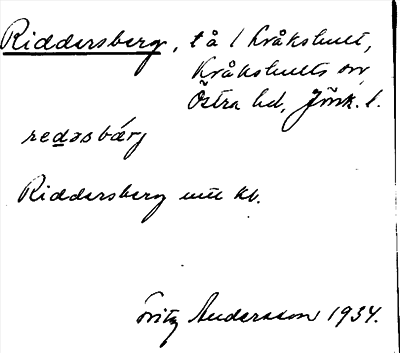 Riddersberg, t å 1 Kråkshult,
Kråkshults sn,
Östra hd, Jönk. l.
redəsbärj
Riddersberg utt kb.
Fritz Andersson 1934.